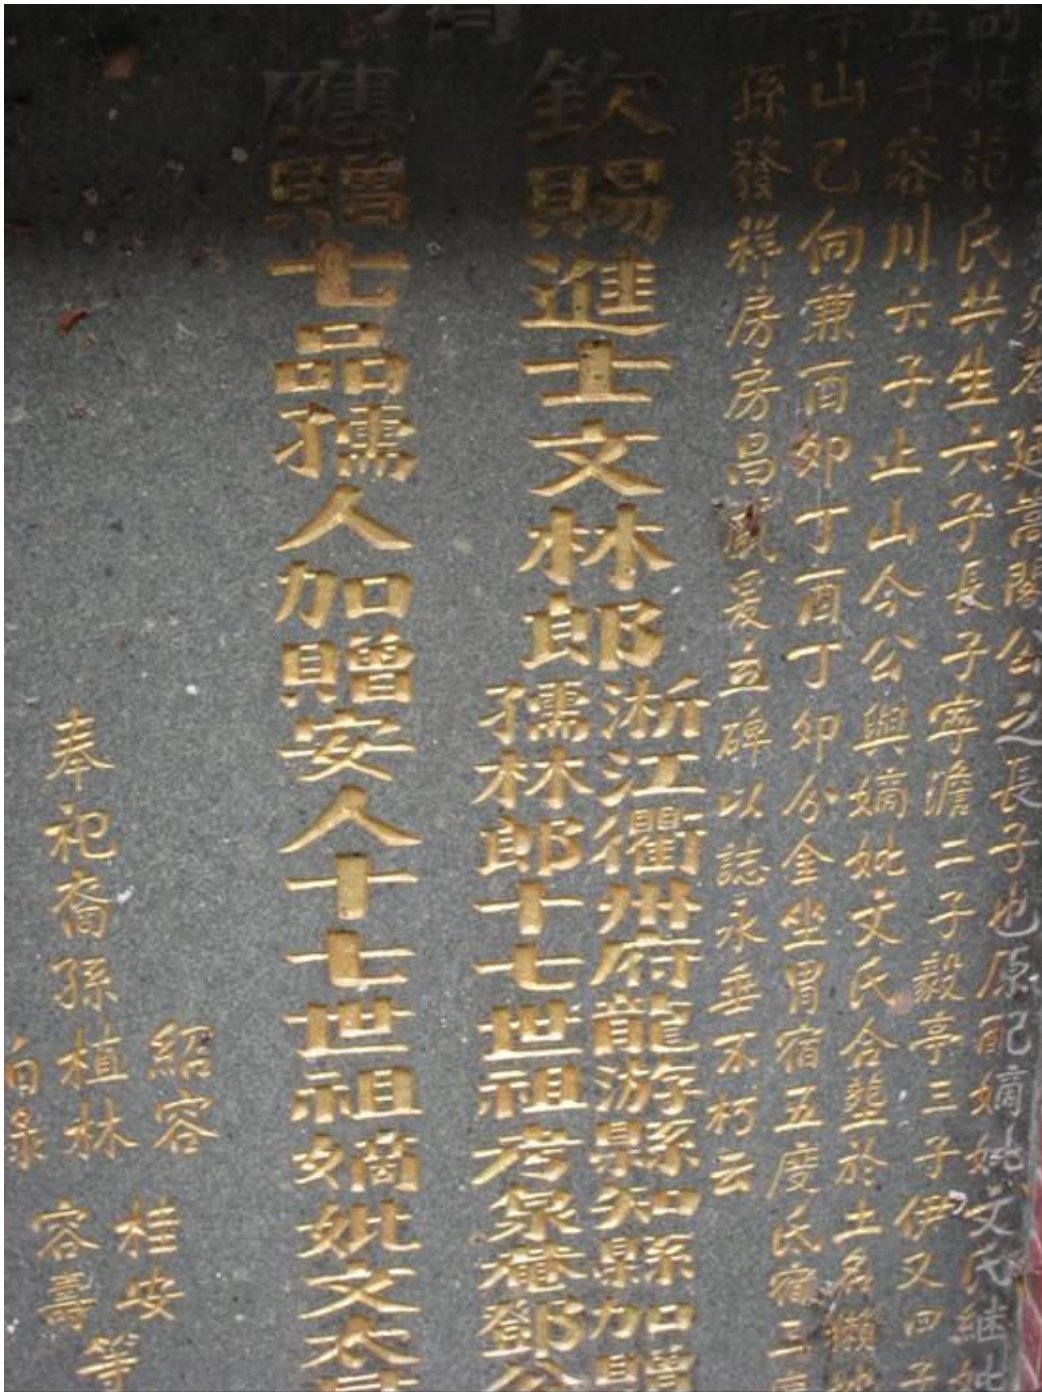 泉菴延嵩閣公之長子也原配嫡妣文氏継妣
副妣范氏共生六子長子寧澹二子毅亭三子伊又四子
五子容川六子止山今公與嫡妣文氏合塟於土名獺地
山乙向兼酉卯丁酉丁卯分金坐胃宿五度氐宿三度
孫發祥房房昌盛爰立碑以誌永垂不朽云
欽賜進士文林郎
淅江衢州府龍游縣知縣加贈
孺林郎十七世祖考泉菴鄧公
應贈七品孺人加贈安人十七世祖嫡妣文太君
紹容
桂安
奉祀裔孫植林
等
容壽
伯